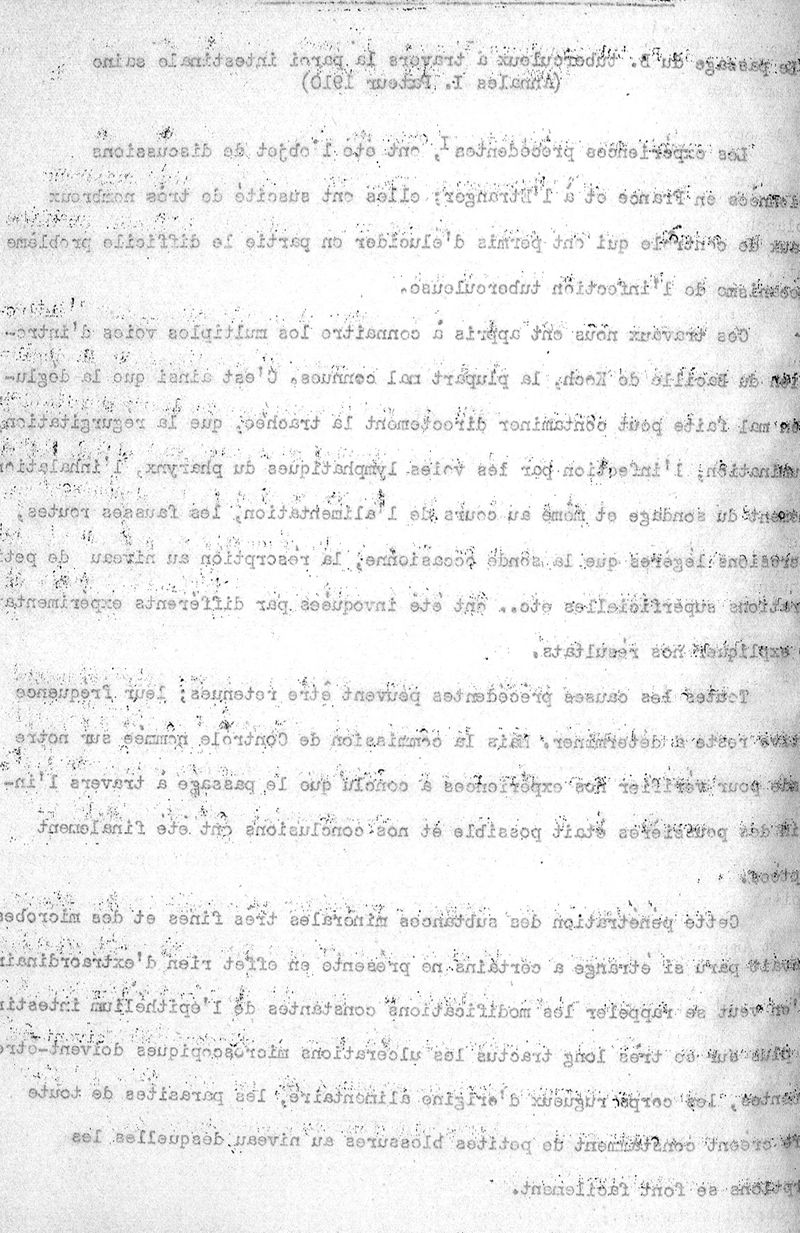 Le passage du B. tuberculeux à travers la paroi intestinale saine
(Annales I. Pateur 1910)
Les expériences précédentes I, ont été l'objet de discussions
en France et à l'Etranger; elles ont suscité de très nombreux
de contrôle qui ont permis d'élucider en partie le difficile problème
de l'infection tuberculeuse.
Ces travaux nous ont appris à connaitre les multiples voies d'intro-
du Bacille de Koch, la plupart mal connues. C'est ainsi que la déglu-
mal faite peut contaminer directement la trachée, que la regurgitation,
l'infection par les voies lymphatiques du pharynx, l'inhalation
du sondage et même au cours de l'alimentation, les fausses routes,
légères que la sonde occasionne, la résorption au niveau de
superficielles etc.. ont été invoquées par différents
expliquer nos résultats.
Toutes les causes précédentes peuvent être retenues; leur fréquence
reste à déterminer. Mais la commission de Contrôle nommée sur notre
pour vérifier nos expériences a conclu que le passage à travers l'in-
des poussières était possible et nos conclusions ont été finalement
Cette pénétration des subtances minérales très fines et des microbes
paru si étrange a certains ne présente en effet rien
veut se rappeler les modifications constantes de l'épithélium
plus sur ce très long tractus les ulcérations microscopiques doivent-être
les corps rugueux d'origine alimentaire, les parasites de toute
créent constamment de petites blessures au niveau desquelles les
se font facilement.